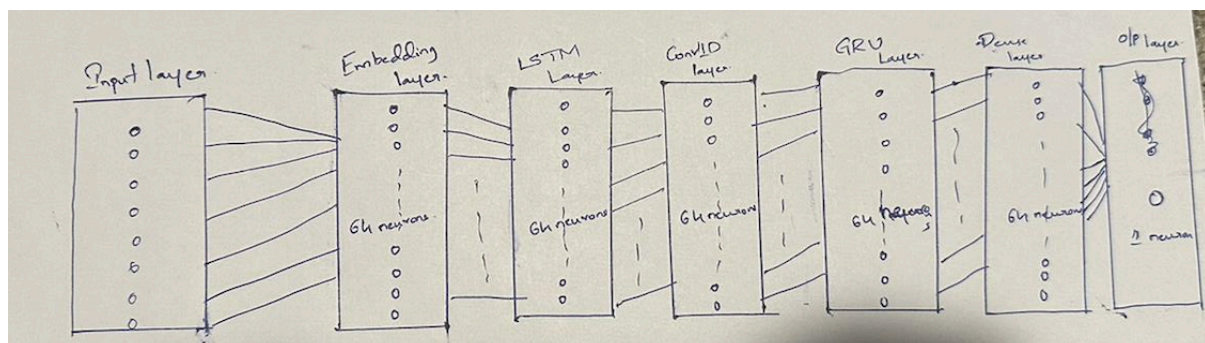 Input layer
Embedding
layer
64 neurons
LSTM
Layer
64 neurons
Conv1D
layer
64 neurons
GRU
Layer
64
Dense
layer
64 neurons
O/P layer
neuron